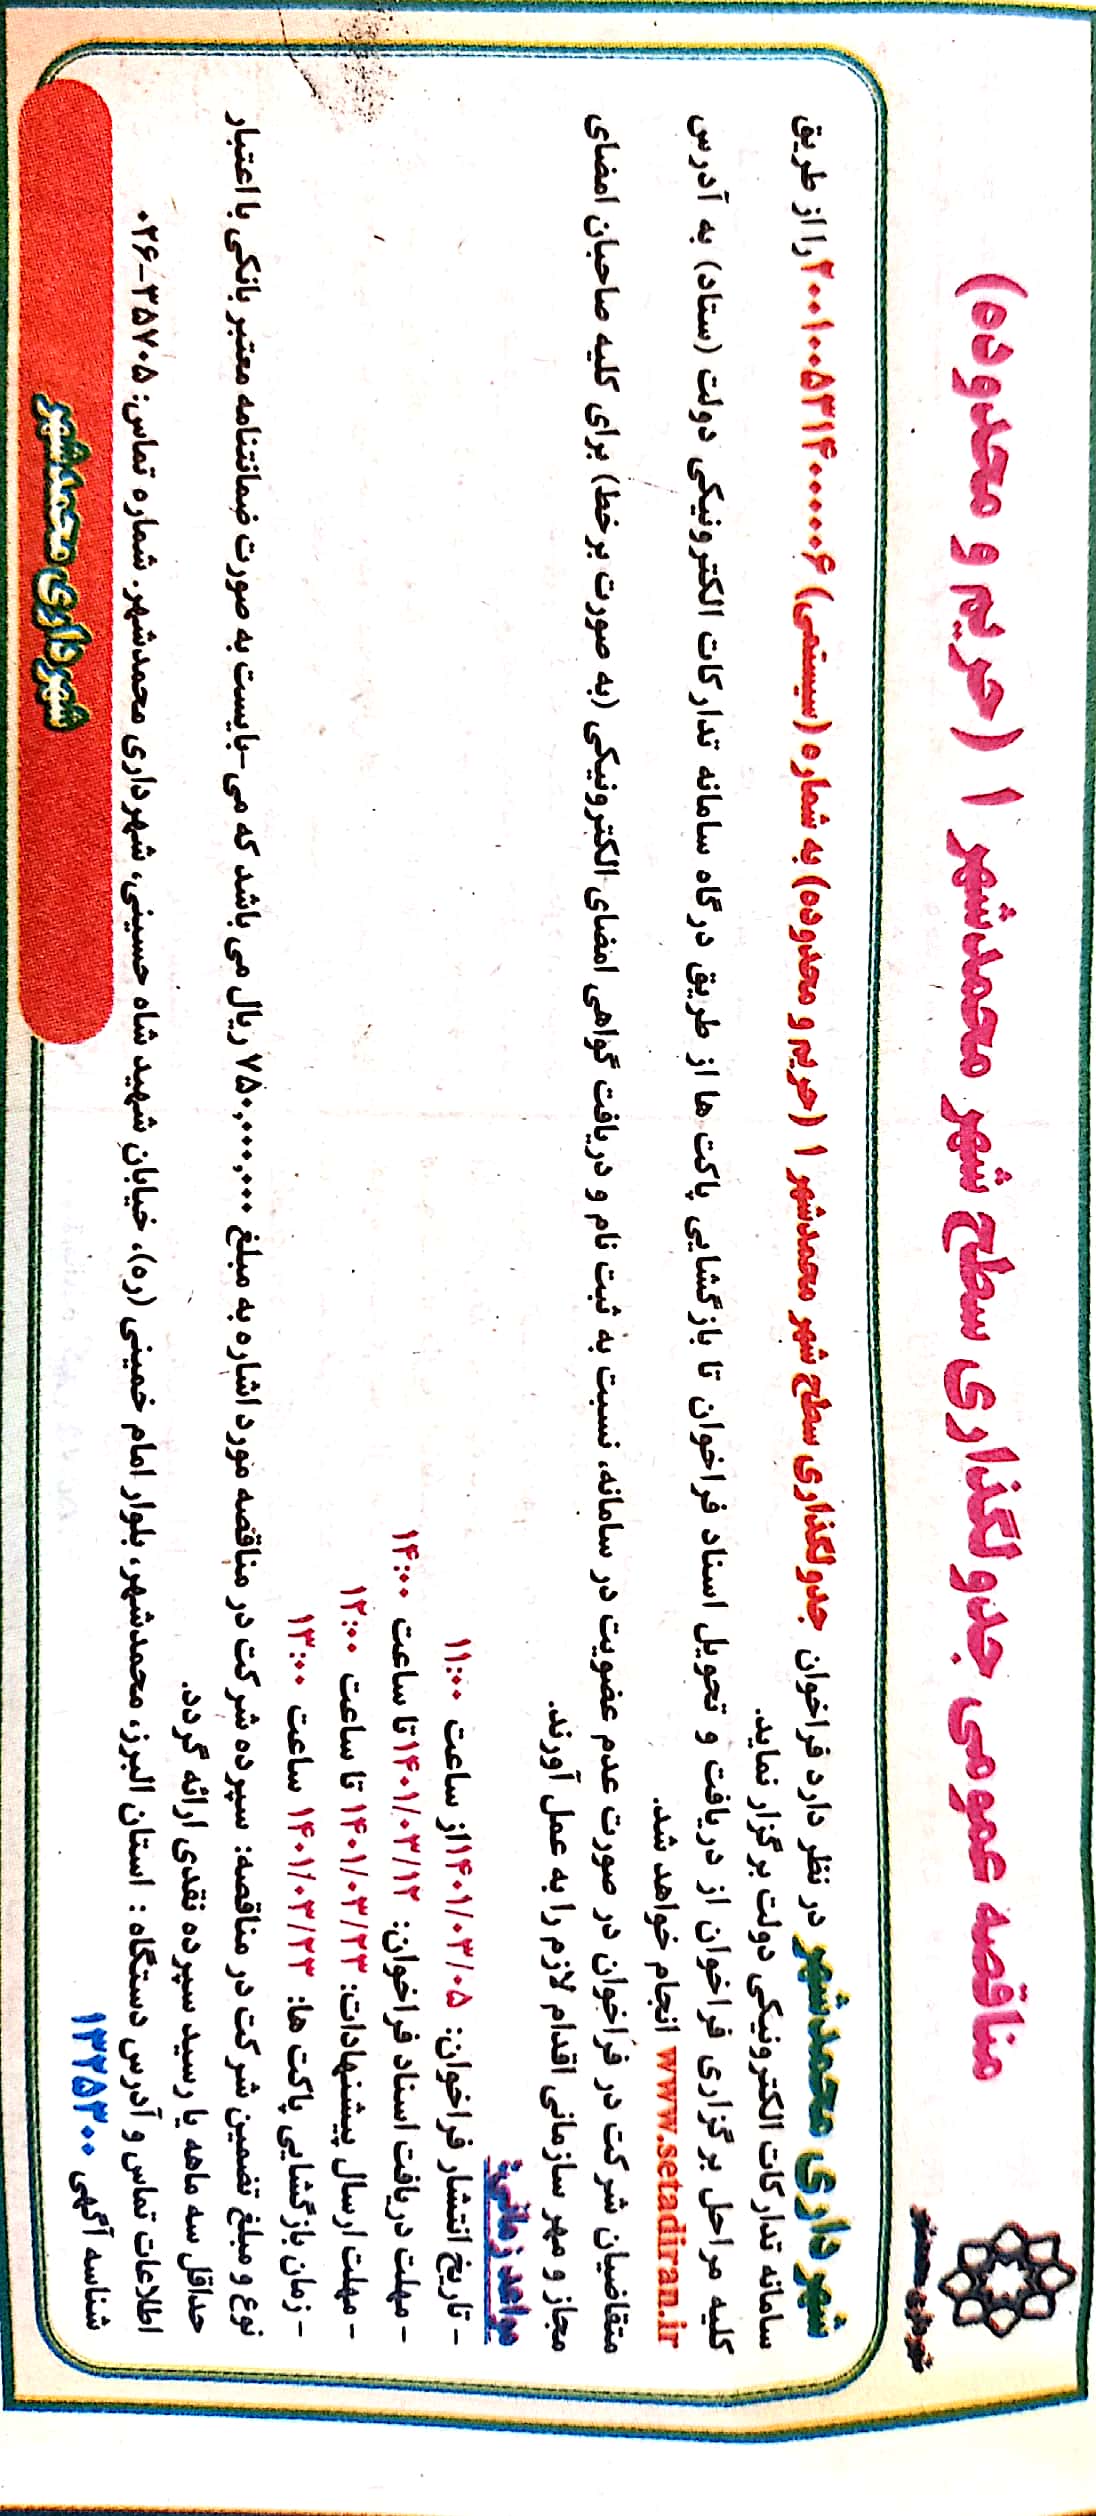 مناقصه عمومی جدولگذاری سطح شهر محمدشهر ۱ (حریم و محدوده)
شهرداری محمدشهر در نظر دارد فراخوان جدولگذاری سطح شهر محمدشهر ۱ (حریم و محدوده) به شماره (سیستمی) ۲۰۰۱۰۰۵۳۱۴۰۰۰۰۰۶ را از طریق
سامانه تدارکات الکترونیکی دولت برگزار نماید.
کلیه مراحل برگزاری فراخوان از دریافت و تحویل اسناد فراخوان تا بازگشایی پاکت ها از طریق درگاه سامانه تدارکات الکترونیکی دولت (ستاد) به آدرس
www.setadiran.ir انجام خواهد شد.
متقاضیان شرکت در فراخوان در صورت عدم عضویت در سامانه، نسبت به ثبت نام و دریافت گواهی امضای الکترونیکی (به صورت برخط) برای کلیه صاحبان امضای
مجاز و مهر سازمانی اقدام لازم را به عمل آورند.
مواعد زمانی:
- تاریخ انتشار فراخوان: ۱۴۰۱/۰۳/۰۵ از ساعت ۱۱:۰۰
- مهلت دریافت اسناد فراخوان: ۱۴۰۱/۰۳/۱۲ تا ساعت ۱۴:۰۰
- مهلت ارسال پیشنهادات: ۱۴۰۱/۰۳/۲۳ تا ساعت ۱۲:۰۰
- زمان بازگشایی پاکت ها: ۱۴۰۱/۰۳/۲۳ ساعت ۱۳:۰۰
نوع و مبلغ تضمین شرکت در مناقصه: سپرده شرکت در مناقصه مورد اشاره به مبلغ ۷۵۰,۰۰۰,۰۰۰ ریال می باشد که می-بایست به صورت ضمانتنامه معتبر بانکی با اعتبار
حداقل سه ماهه یا رسید سپرده نقدی ارائه گردد.
اطلاعات تماس و آدرس دستگاه : استان البرز، محمدشهر، بلوار امام خمینی (ره)، خیابان شهید شاه حسینی، شهرداری محمدشهر. شماره تماس: ۳۵۷۰۵-۰۲۶
شناسه آگهی ۱۳۲۵۳۰۰
شهرداری محمدشهر